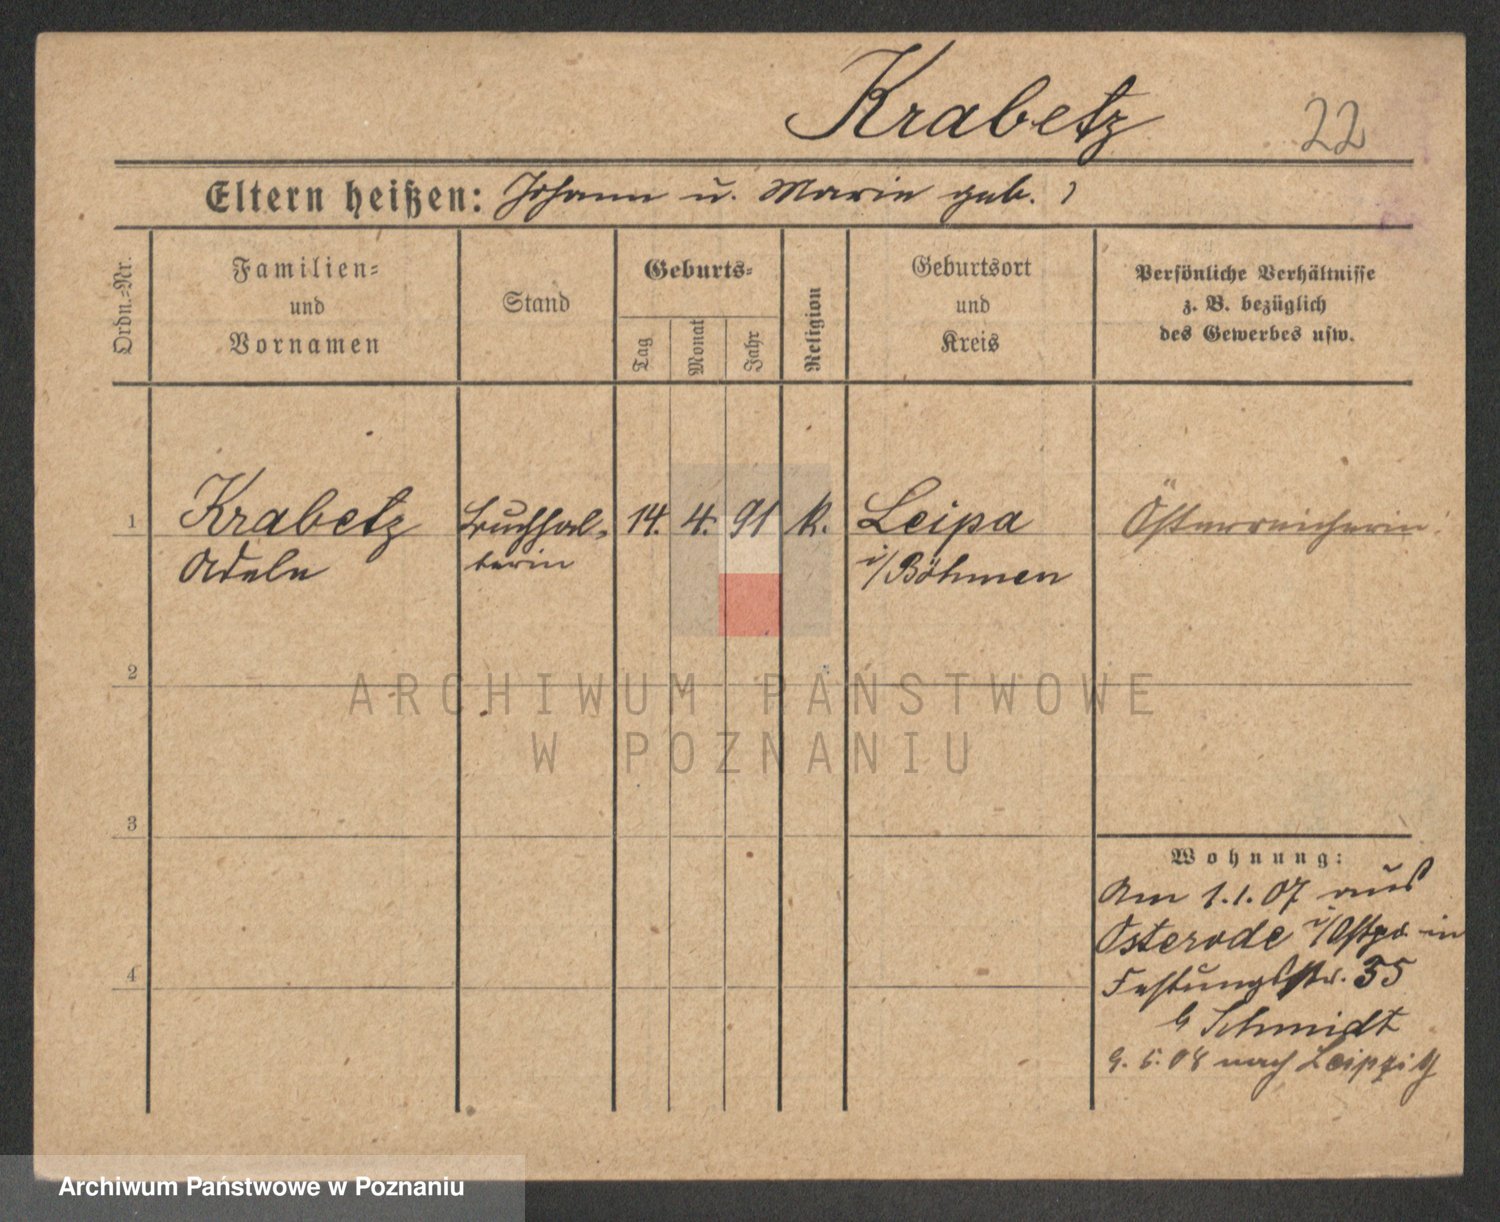 Krabetz
22
Eltern heißen: Johann u. Marie geb. ?
Ordn.-Nr.
Familien-
und
Vornamen
Stand
Geburts-
Tag
Monat
Jahr
Religion
Geburtsort
und
Kreis
Persönliche Verhältnisse
z. B. bezüglich
des Gewerbes usw.
1
Krabetz
Adele
Buchhal-
terin
14. 4. 91
k.
Leipa
i/Böhmen
Österreicherin
2
3
4
Wohnung:
Am 1.1.07 aus
Osterode i/Ostpr in
Festungsstr. 35
b Schmidt
9. 5. 08 nach Leipzig
ARCHIWUM PAŃSTWOWE
W POZNANIU
Archiwum Państwowe w Poznaniu